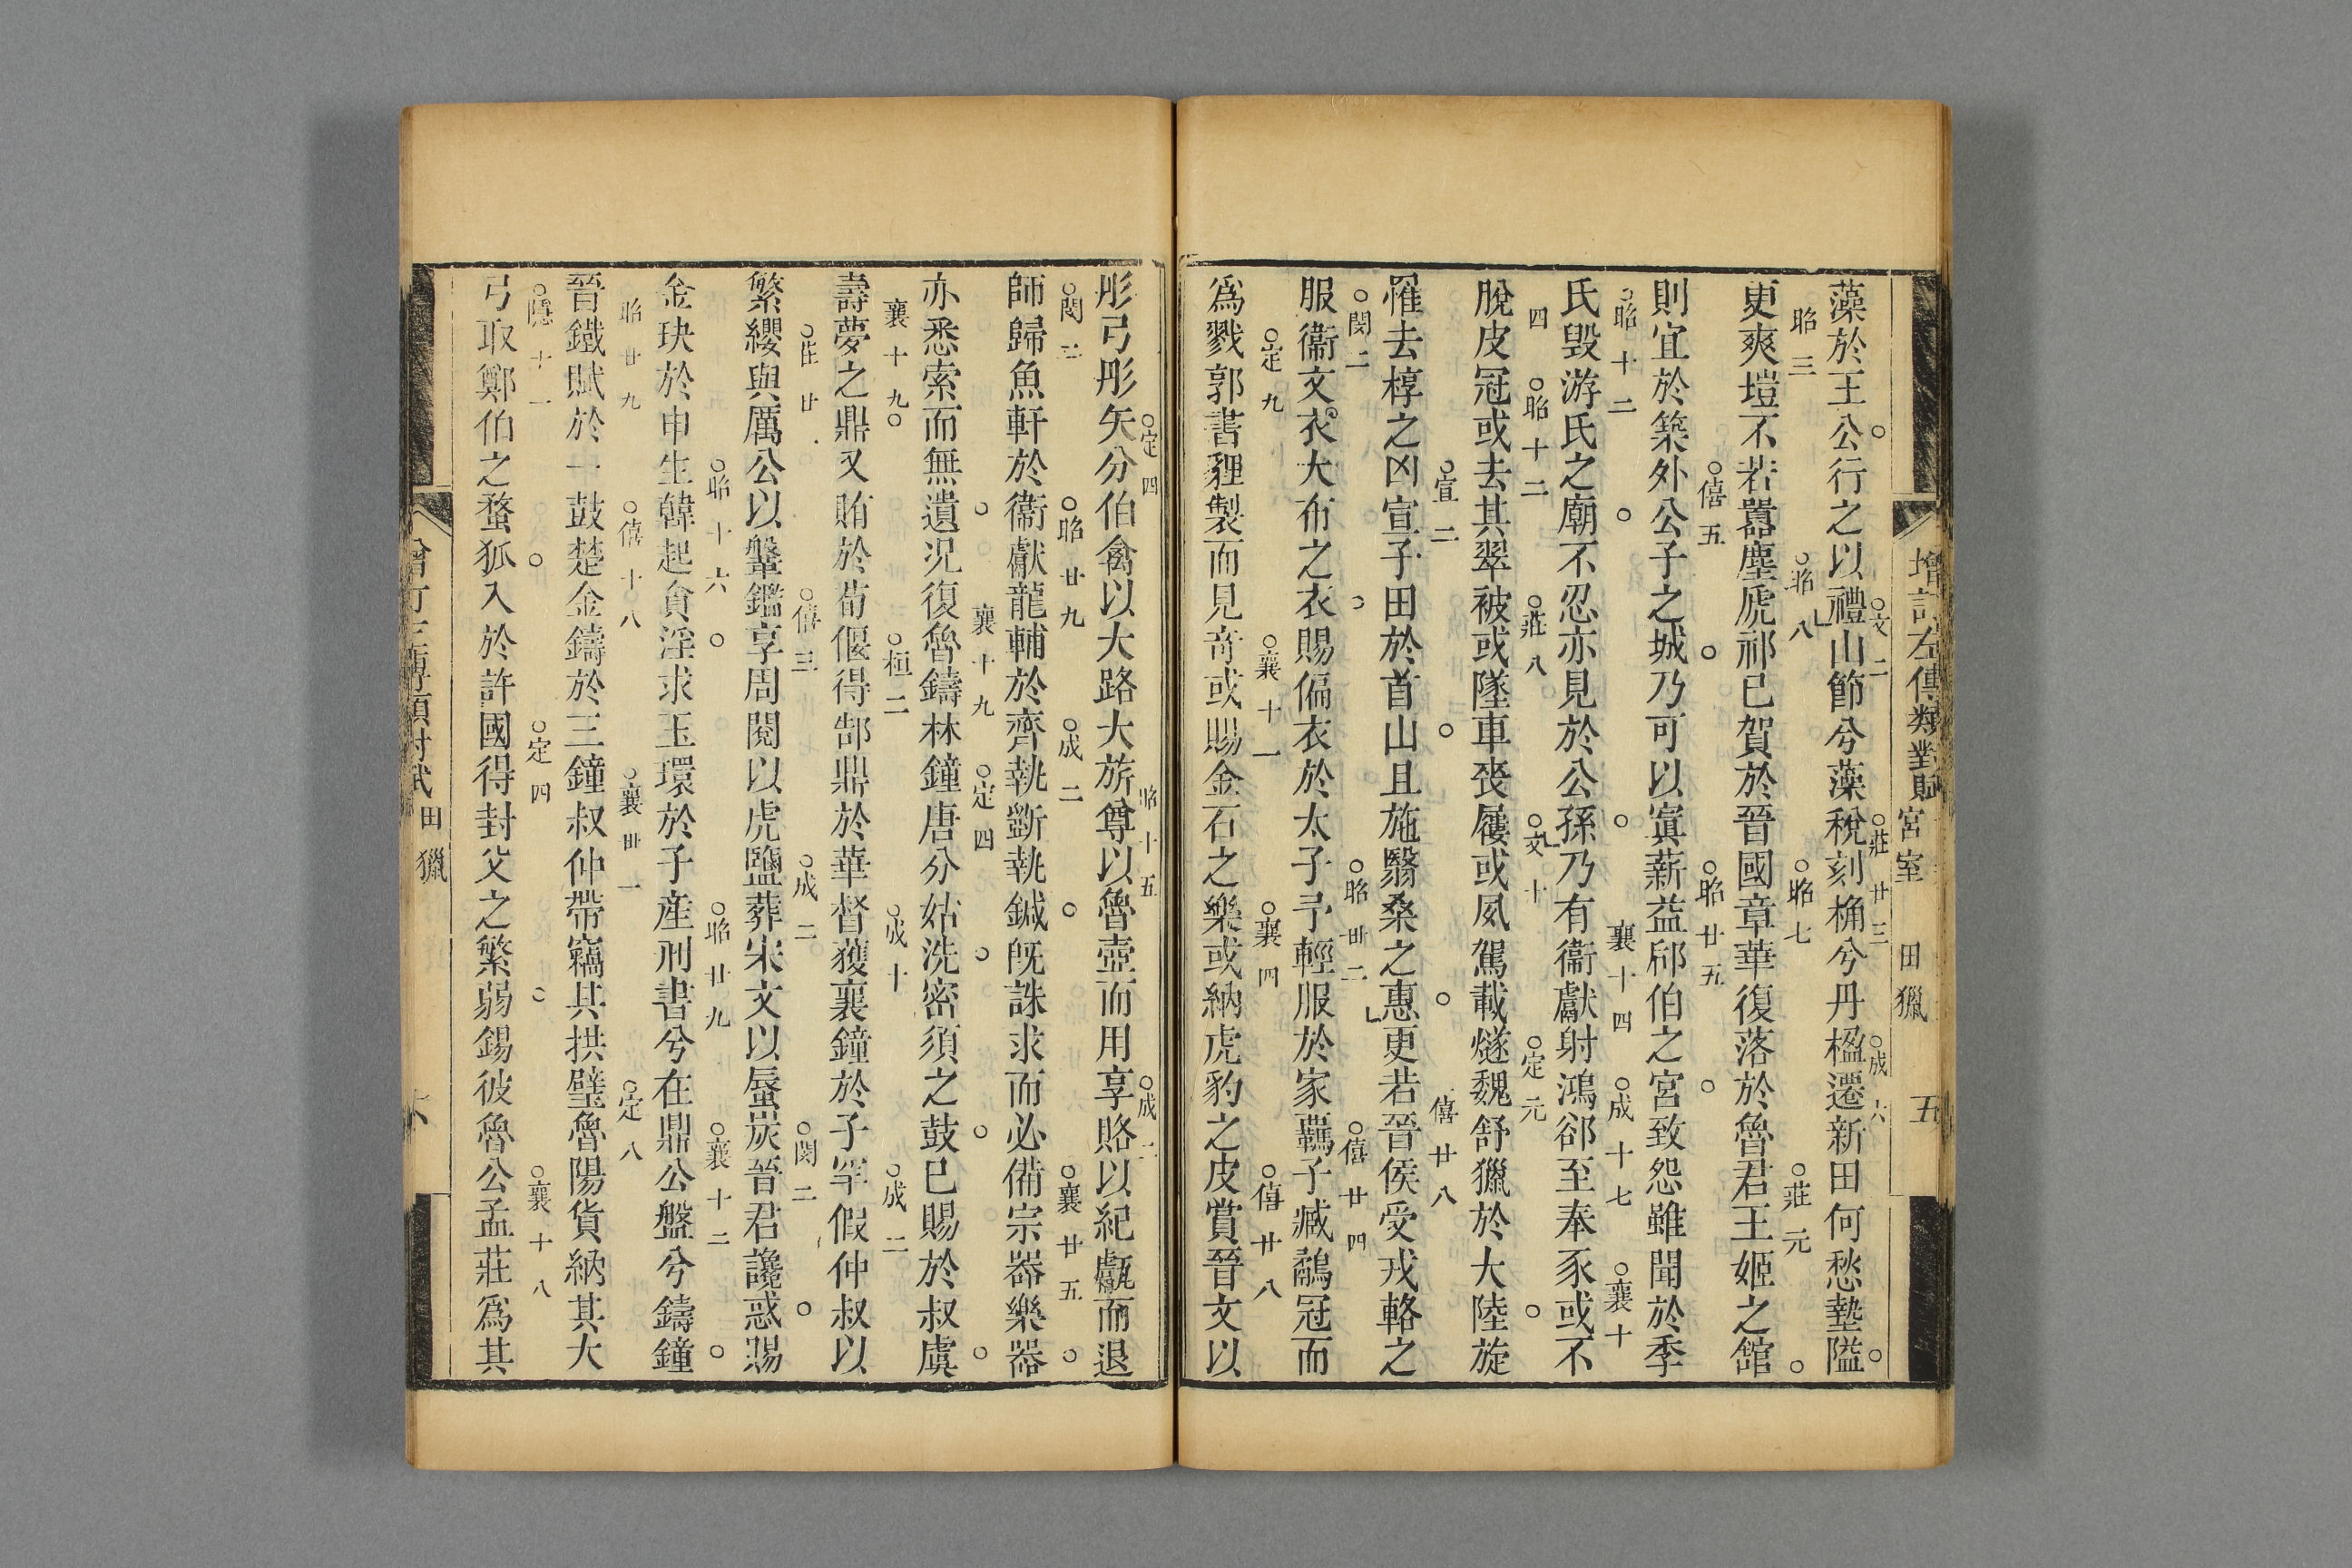 增訂左傳類對賦 宮室 田獵 五
藻於王公行之以禮山節兮藻梲刻桷兮丹楹遷新田何愁墊隘
文二 莊廿三 成六
更爽塏不若囂塵虒祁已賀於晉國章華復落於魯君王姬之館
昭三 昭八 昭七 莊元
則宜於築外公子之城乃可以寘薪益郈伯之宮致怨雖聞於季
僖五 昭廿五
氏毀游氏之廟不忍亦見於公孫乃有衞獻射鴻郤至奉豕或不
昭十二 襄十四 成十七 襄十
脫皮冠或去其翠被或墜車喪屨或夙駕載燧魏舒獵於大陸旋
四 昭十二 莊八 文十 定元
罹去椁之凶宣子田於首山且施翳桑之惠更若晉侯受戎輅之
宣二 僖廿八
服衞文衣大布之衣賜偏衣於太子予輕服於家羈子臧鷸冠而
閔二 昭卅二 僖廿四
爲戮郭書貍製而見竒或賜金石之樂或納虎豹之皮賞晉文以
定九 襄十一 襄四 僖廿八
彤弓彤矢分伯禽以大路大旂尊以魯壺而用享賂以紀甗而退
定四 昭十五 成二
師歸魚軒於衞獻龍輔於齊執斵執鍼旣誅求而必備宗器樂器
閔二 昭廿九 成二 襄廿五
亦悉索而無遺况復魯鑄林鐘唐分姑洗密須之鼓已賜於叔虞
襄十九 定四
壽夢之鼎又賄於荀偃得郜鼎於華督獲襄鐘於子罕假仲叔以
襄十九 桓二 成十 成二
繁纓與厲公以鞶鑑享周閱以虎鹽葬宋文以蜃炭晉君讒惑賜
莊廿 僖三 成二 閔二
金玦於申生韓起貪淫求玉環於子產刑書兮在鼎公盤兮鑄鐘
昭十六 昭廿九 襄十二
晉鐵賦於一鼓楚金鑄於三鐘叔仲帶竊其拱璧魯陽貨納其大
昭廿九 僖十八 襄卅一 定八
弓取鄭伯之蝥狐入於許國得封父之繁弱錫彼魯公孟莊爲其
隱十一 定四 襄十八
田獵 六